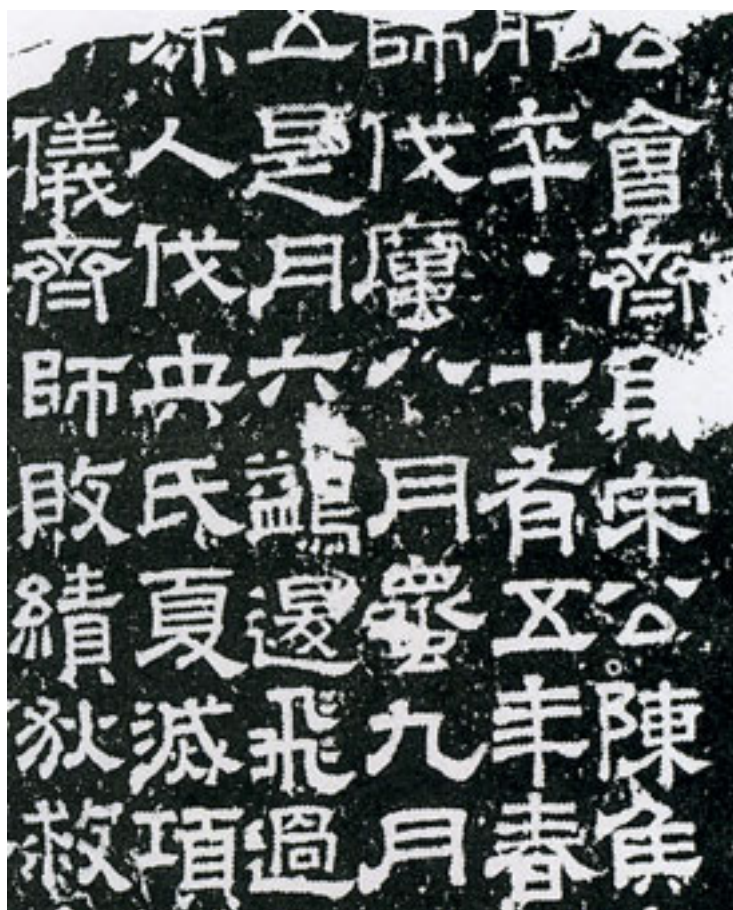 公會齊侯宋公陳侯
肸卒·十有五年春
師伐厲八月螽九月
五是月六鷁退飛過
徐人伐英氏夏滅項
儀齊師敗績狄救